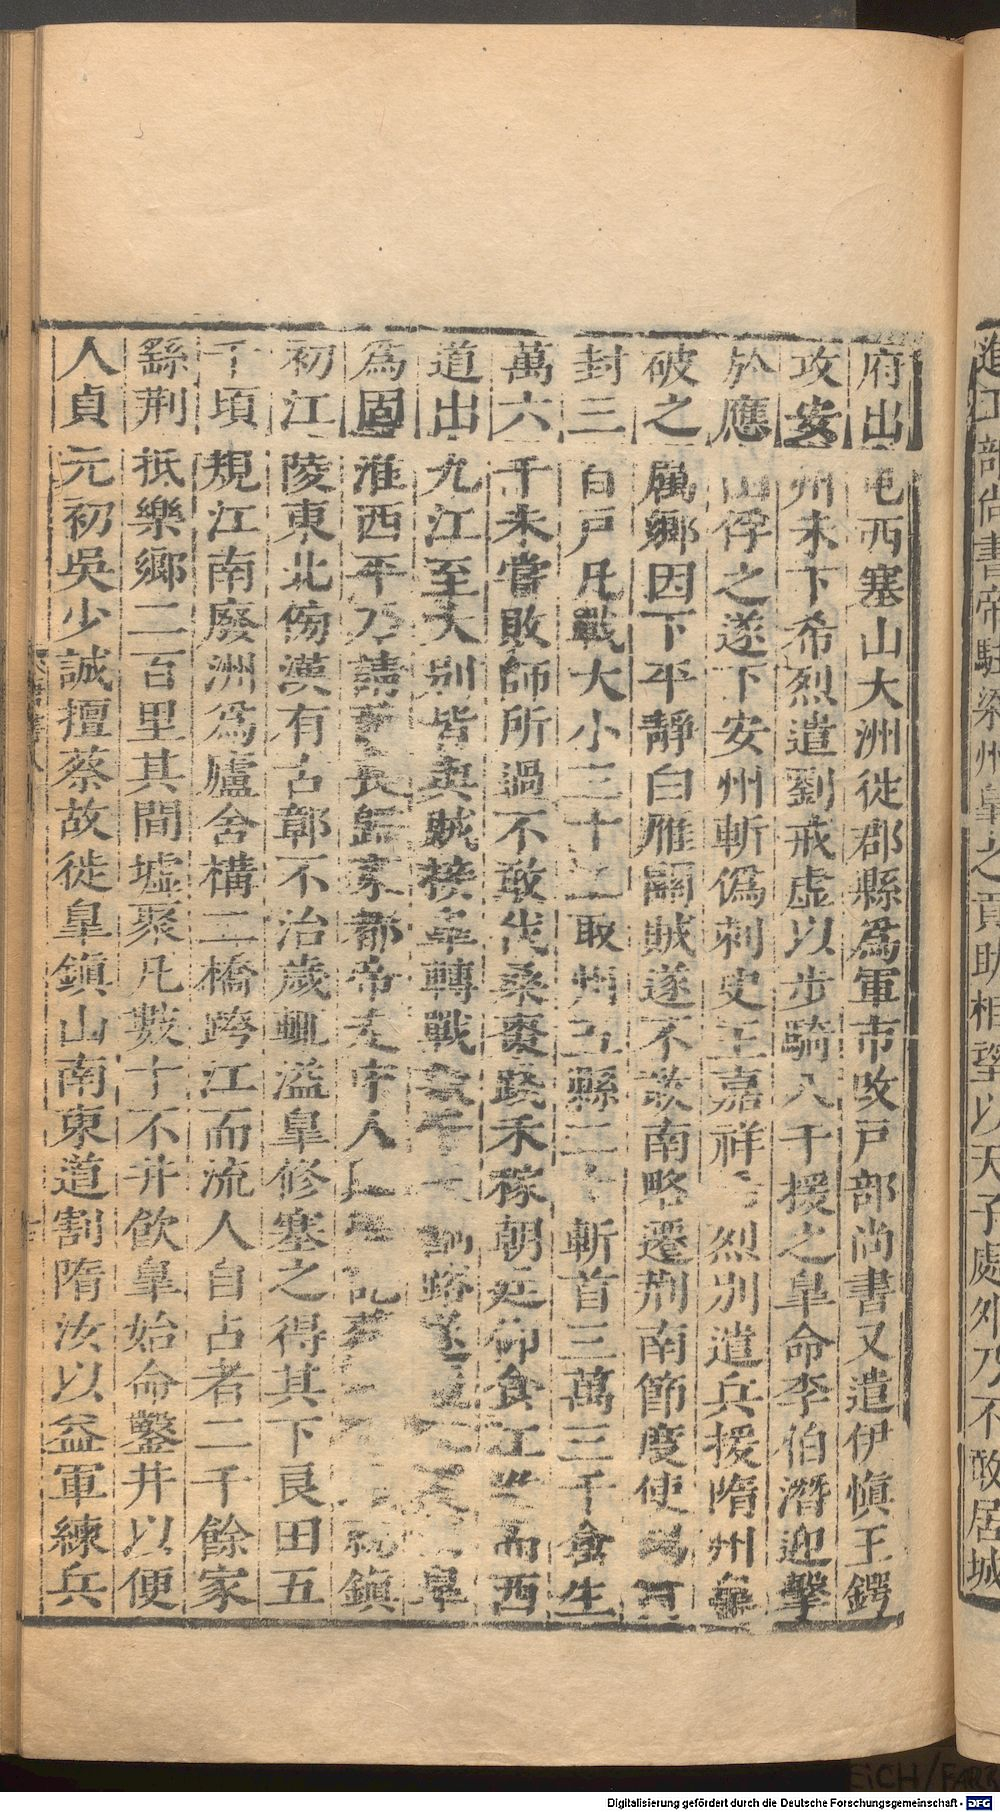 進工部尚書帝駐梁州皐之貢助相望以天子處外乃不敢居城
府出屯西塞山大洲徙郡縣爲軍市改戶部尚書又遣伊慎王鍔
攻安州未下希烈遣劉戒虛以步騎八千援之皐命李伯潛迎擊
於應山俘之遂下安州斬僞刺史王嘉祥烈別遣兵援隋州皐
破之厲鄉因下平靜白雁關賊遂不敢南略遷荆南節度使
封三百戶凡戰大小三十二取州五縣二十斬首三萬三千禽生
萬六千未嘗敗師所過不敢伐桑棗踐禾稼朝廷仰食江淮而西
道出九江至大別皆與賊接皐轉戰數千路遂皐
爲固淮西平乃請護喪歸東都帝走中人就鎮
初江陵東北傍漢有古鄣不治歲輒溢皐修塞之得其下良田五
千頃規江南廢洲爲廬舍構二橋跨江而流人自占者二千餘家
繇荆抵樂鄉二百里其間墟聚凡數十不井飲皐始命鑿井以便
人貞元初吳少誠擅蔡故徙皐鎮山南東道割隋汝以益軍練兵
Digitalisierung gefördert durch die Deutsche Forschungsgemeinschaft - DFG